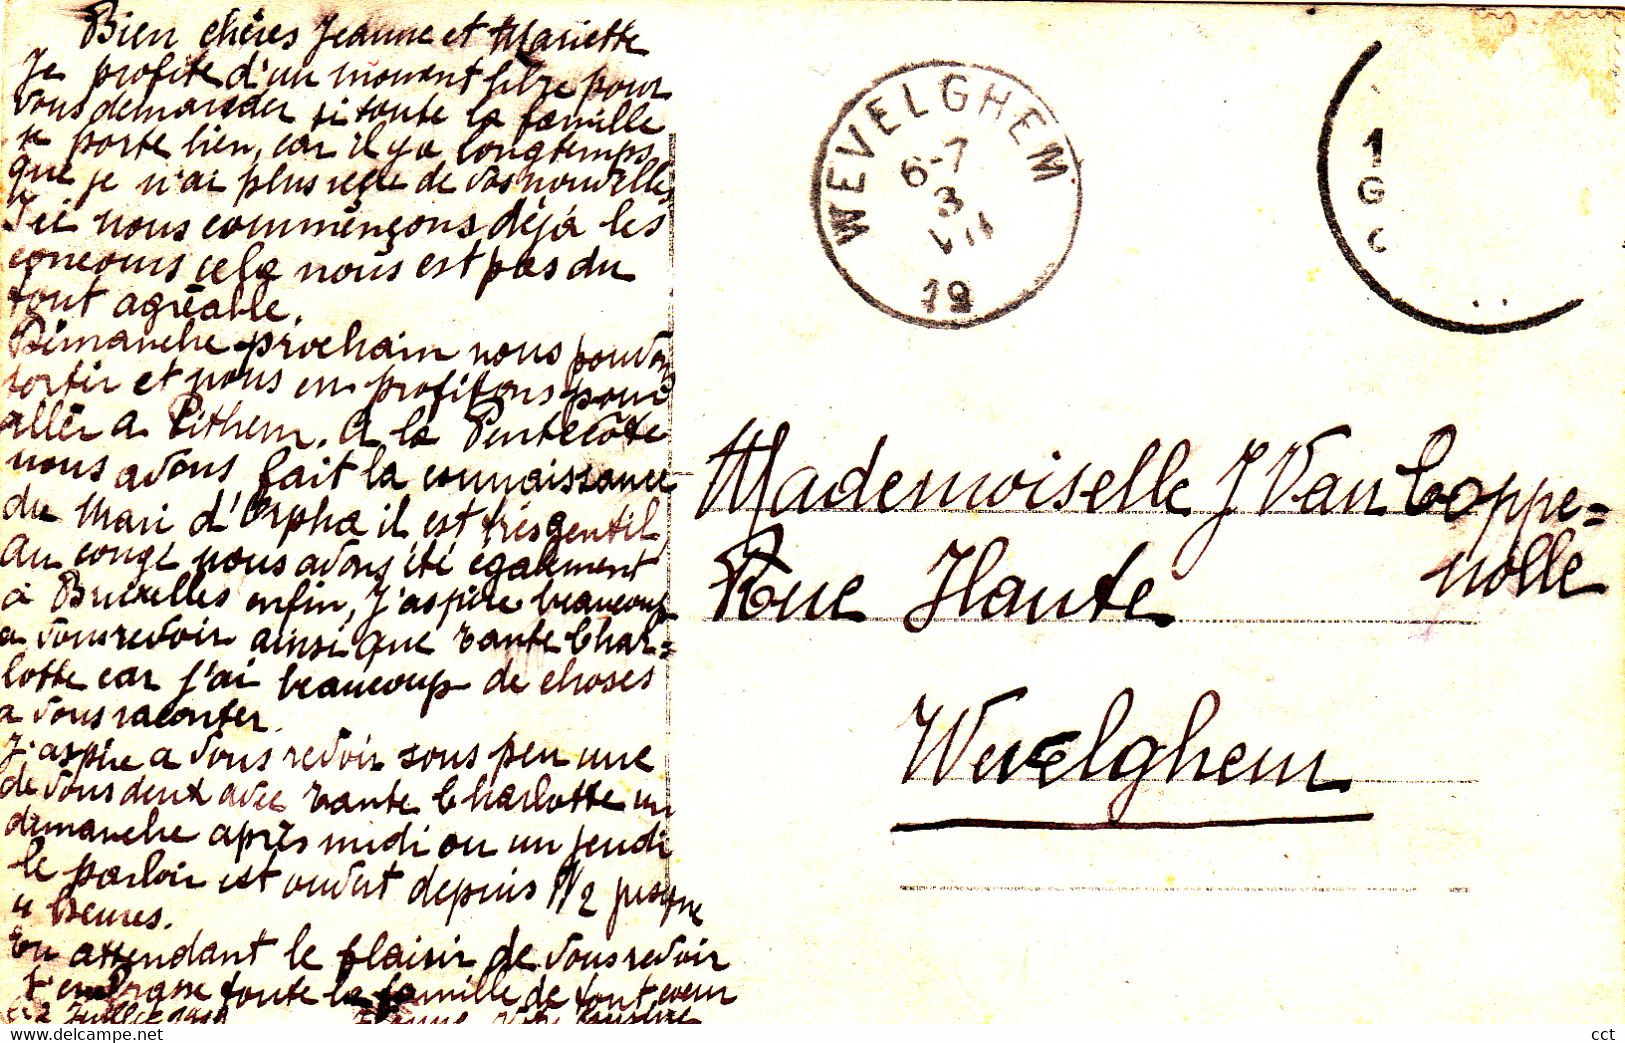 Bien chères Jeanne et Mariette
Je profite d'un moment libre pour
vous demander si toute la famille
se porte bien, car il y a longtemps
que je n'ai plus reçu de vos nouvelles
Ici nous commençons déjà les
concours cela nous est pas du
tout agréable.
Dimanche prochain nous pouvons
sortir et nous en profitons pour
aller a Pithem. A la Pentecôte
nous avons fait la connaissance
du Mari d'Orpha il est très gentil
au congé nous avons été également
à Bruxelles enfin, J'aspire beaucoup
a vous revoir ainsi que tante Char=
lotte car j'ai beaucoup de choses
a vous raconter.
J'aspire a vous revoir sous peu une
de vous deux avec tante Charlotte un
dimanche après midi ou un jeudi
le parloir est ouvert depuis 1 1/2 jusque
4 heures.
En attendant le plaisir de vous revoir
J'embrasse toute la famille de tout cœur
2 Juillet
WEVELGHEM
6-7
3
VII
19
1
G
C
Mademoiselle J Van Coppe=
nolle
Rue Haute
Wevelghem
www.delcampe.net
cct